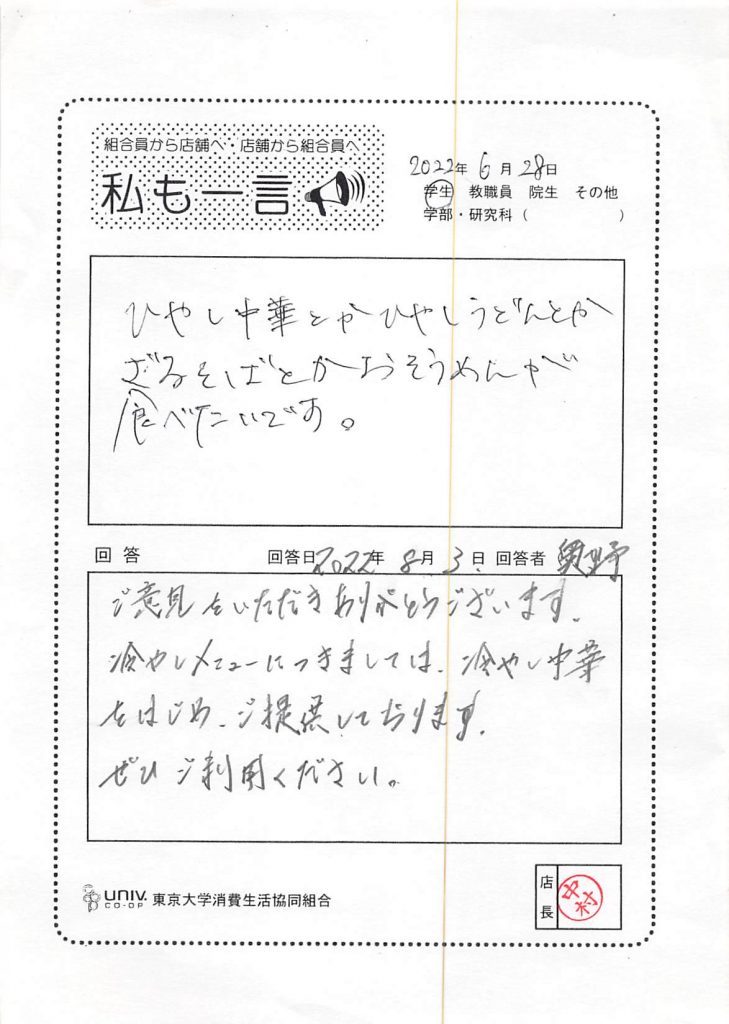 組合員から店舗へ・店舗から組合員へ
私も一言
2022年 6月 28日
学生 教職員 院生 その他
学部・研究科（ ）
ひやし中華とかひやしうどんとか
ざるそばとかおそうめんが
食べたいです。
回答 回答日2022年 8月 3日 回答者
ご意見をいただきありがとうございます。
冷やしメニューにつきましては、冷やし中華
をはじめ、ご提供しております。
ぜひご利用ください。
UNIV. CO-OP 東京大学消費生活協同組合
店長 中村